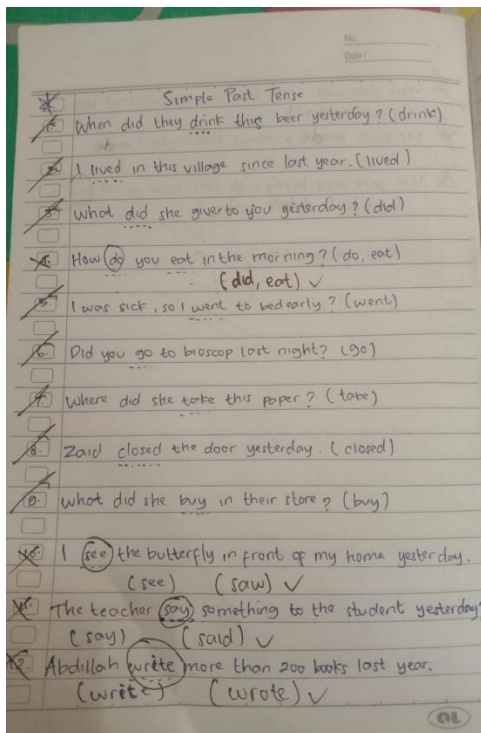 No.
Date:
Simple Past Tense
1. When did they drink this beer yesterday? (drink)
2. I lived in this village since last year. (lived)
3. What did she give to you yesterday? (did)
4. How do you eat in the morning? (do, eat)
(did, eat) ✓
5. I was sick, so I went to bed early? (went)
6. Did you go to bioscop last night? (go)
7. Where did she take this paper? (take)
8. Zaid closed the door yesterday. (closed)
9. What did she buy in their store? (buy)
10. I see the butterfly in front of my home yesterday.
(see) (saw) ✓
11. The teacher say something to the student yesterday
(say) (said) ✓
12. Abdillah write more than 200 books last year.
(write) (wrote) ✓